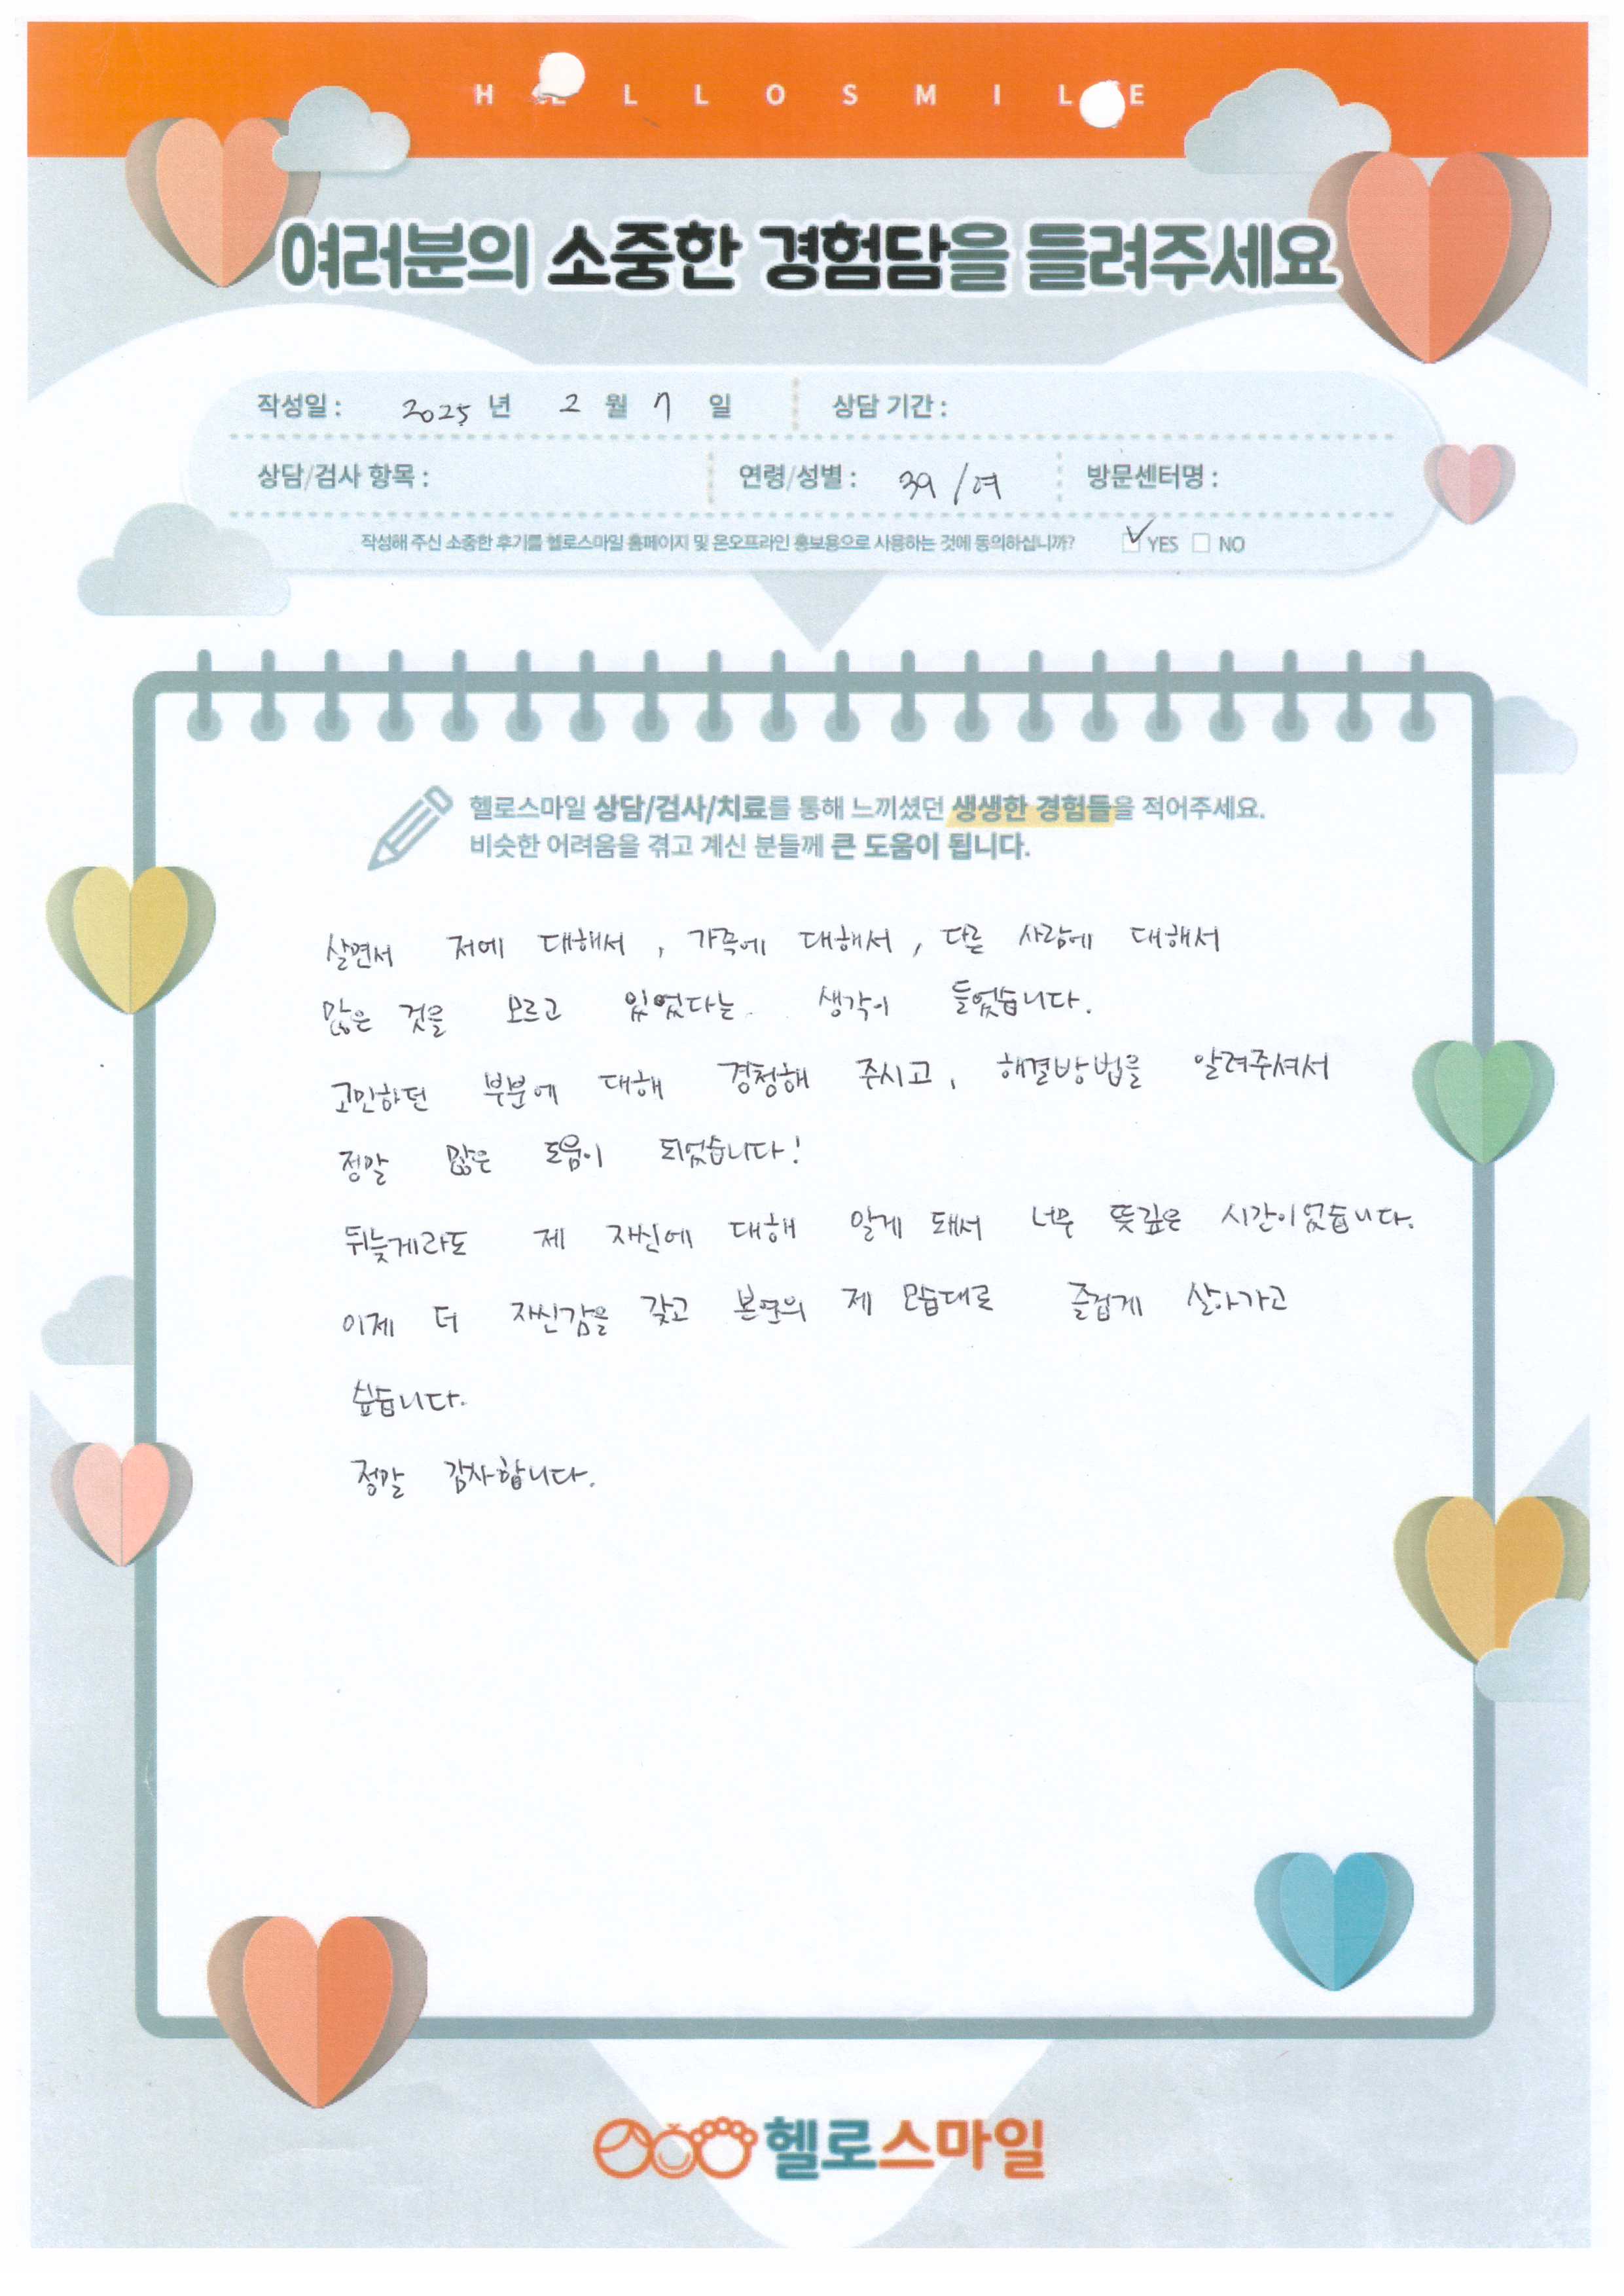 HELLO SMILE
여러분의 소중한 경험담을 들려주세요
작성일 : 2025 년 2 월 7 일 상담 기간 :
상담/검사 항목 : 연령/성별 : 39 / 여 방문센터명 :
작성해 주신 소중한 후기를 헬로스마일 홈페이지 및 온오프라인 홍보용으로 사용하는 것에 동의하십니까? YES NO
헬로스마일 상담/검사/치료를 통해 느끼셨던 생생한 경험들을 적어주세요.
비슷한 어려움을 겪고 계신 분들께 큰 도움이 됩니다.
살면서 저에 대해서, 가족에 대해서, 다른 사람에 대해서
많은 것을 모르고 있었다는 생각이 들었습니다.
고민하던 부분에 대해 경청해 주시고, 해결방법을 알려주셔서
정말 많은 도움이 되었습니다!
뒤늦게라도 제 자신에 대해 알게 돼서 너무 뜻깊은 시간이었습니다.
이제 더 자신감을 갖고 본연의 제 모습대로 즐겁게 살아가고
싶습니다.
정말 감사합니다.
헬로스마일